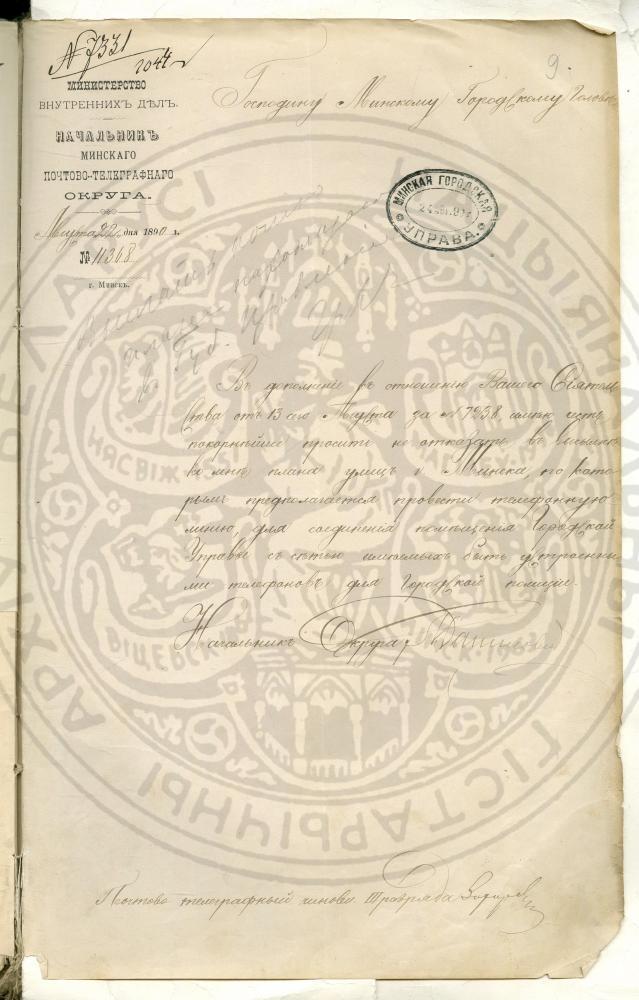 № 7331
2044
9
МИНИСТЕРСТВО
ВНУТРЕННИХЪ ДѢЛЪ.
НАЧАЛЬНИКЪ
МИНСКАГО
ПОЧТОВО-ТЕЛЕГРАФНАГО
ОКРУГА.
Августа 22 дня 1890 г.
№ 11368
г. Минскъ.
Господину Минскому Городскому Головѣ
МИНСКАЯ ГОРОДСКАЯ
УПРАВА.
Въ дополненіе къ отношенію Вашего Сіятель
ства отъ 13 сего Августа за № 7238, имѣю честь
покорнѣйше просить не отказать въ высылкѣ
ко мнѣ плана улицъ г. Минска, по кото
рымъ предполагается провести телефонную
линію, для соединенія помѣщенія Городской
Управы съ сѣтью имѣемыхъ быть устроенны
ми телефоновъ для Городской полиціи.
Начальникъ Округа
Почтово-телеграфный чиновн. III разряда
АРХІ
БЕЛАРУСІ
ГІСТАРЫЧНЫ
НЯСВІЖ
ВІЦЕБСК